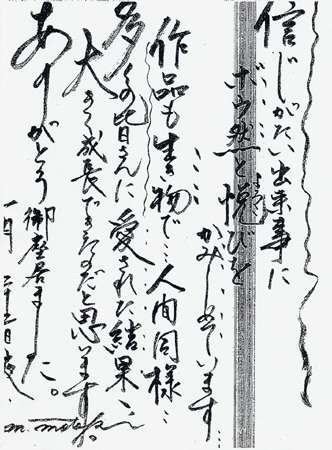 信じがたい出来事に
ボウ然と悦びを
かみしめています
作品も生き物で…人間同様…
多くの皆さんに愛された結果…
大きく成長できたのだと思います。
ありがとう御座居ました。
一月二十二日